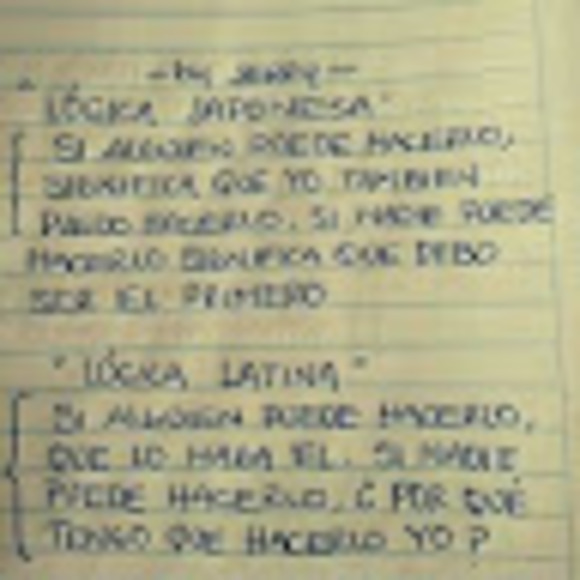 -by
"LÓGICA JAPONESA"
SI ALGUIEN PUEDE HACERLO,
SIGNIFICA QUE YO TAMBIEN
PUEDO HACERLO. SI NADIE PUEDE
HACERLO SIGNIFICA QUE DEBO
SER EL PRIMERO
"LÓGICA LATINA"
SI ALGUIEN PUEDE HACERLO,
QUE LO HAGA EL. SI NADIE
PUEDE HACERLO, ¿POR QUÉ
TENGO QUE HACERLO YO?